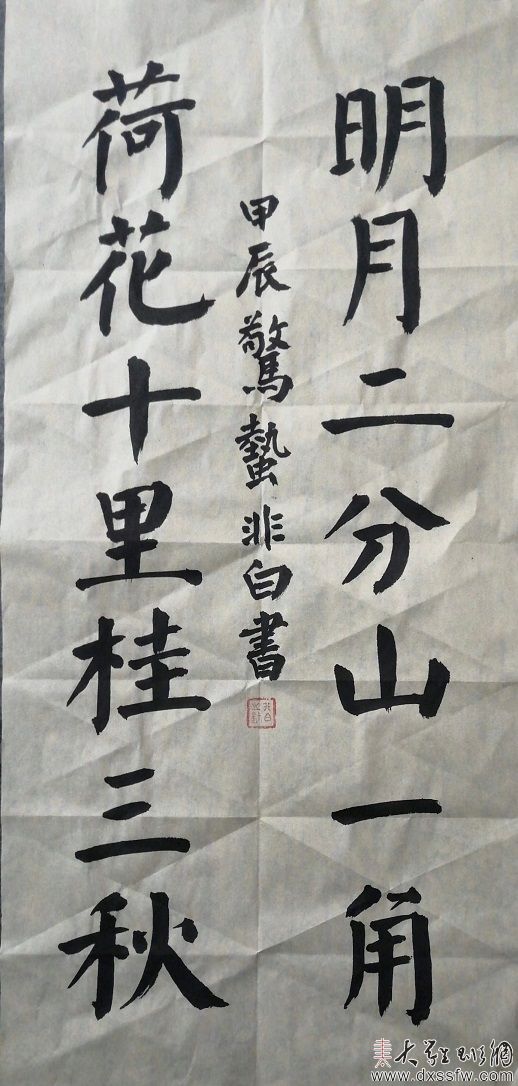 明月二分山一角
甲辰驚蟄非白書
荷花十里桂三秋
www.dxssfw.com